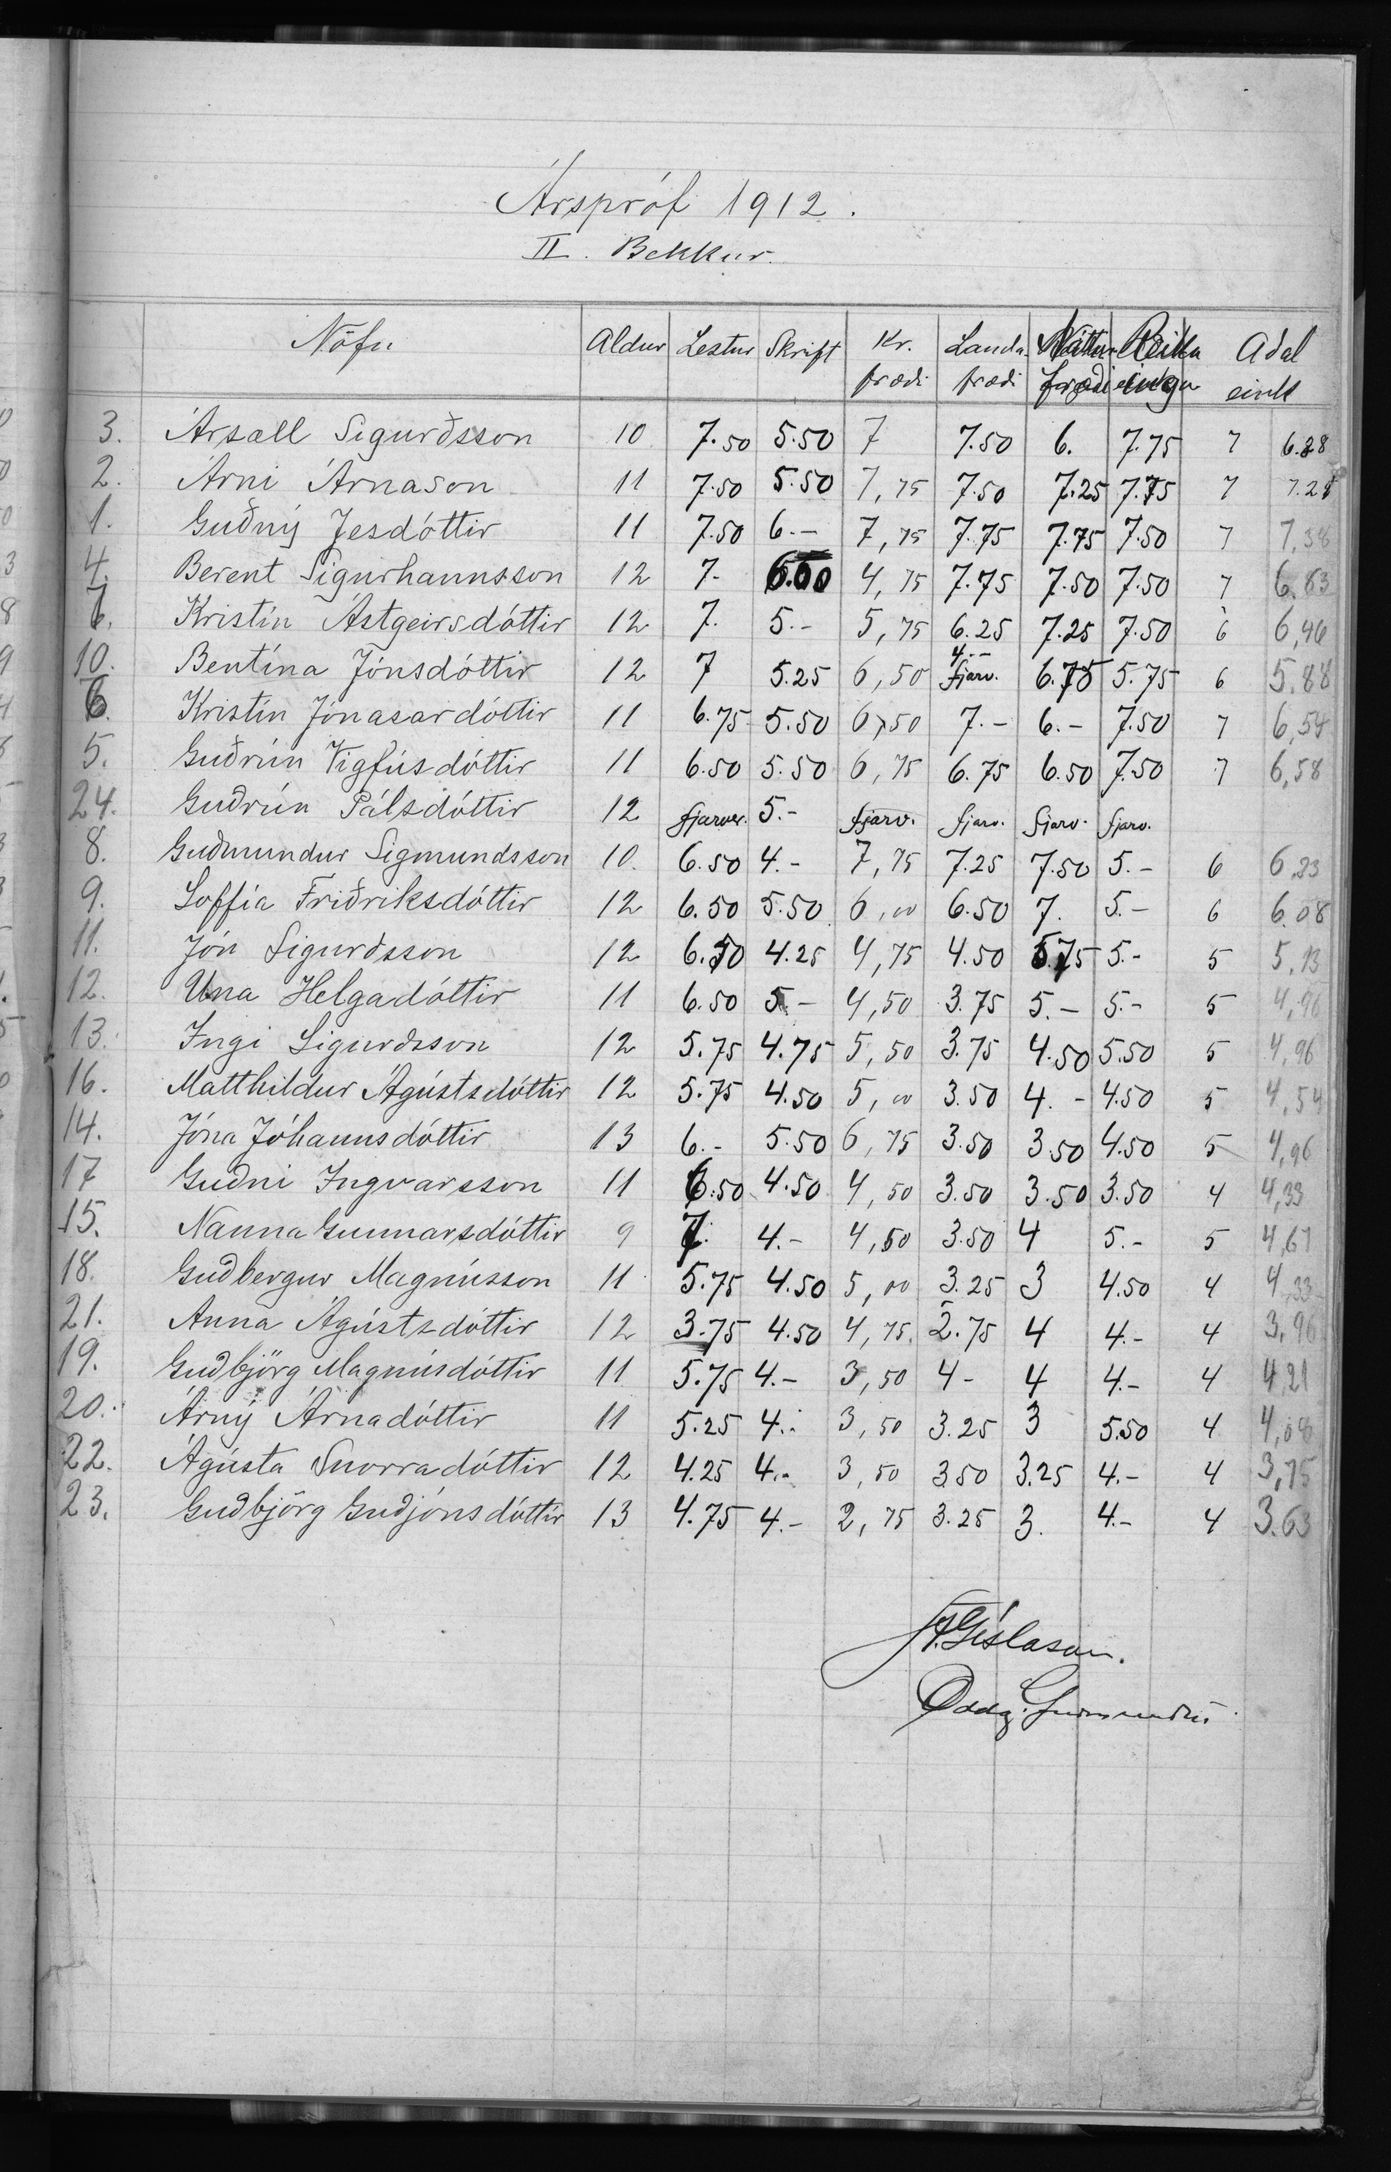 Árspróf 1912.
II. Bekkur.
Nöfn Aldur Lestur Skrift Kr. fræði Landa- fræði Náttúru fræði Reikn ingur Aðal eink
3. Ársæll Sigurðsson 10 7.50 5.50 7 7.50 6. 7.75 7 6.88
2. Árni Árnason 11 7.50 5.50 7,75 7.50 7.25 7.75 7 7.21
1. Guðný Jesdóttir 11 7.50 6.- 7,75 7.75 7.75 7.50 7 7,38
4. Berent Sigurhannsson 12 7. 6.00 4,75 7.75 7.50 7.50 7 6.83
7. Kristín Ástgeirsdóttir 12 7. 5.- 5,75 6.25 7.25 7.50 6 6,46
10. Bentína Jónsdóttir 12 7 5.25 6,50 4.- fjarv. 6.75 5.75 6 5.88
6. Kristín Jónasardóttir 11 6.75 5.50 6,50 7.- 6.- 7.50 7 6,54
5. Guðrún Vigfúsdóttir 11 6.50 5.50 6,75 6.75 6.50 7.50 7 6,58
24. Guðrún Pálsdóttir 12 fjarver. 5.- fjarv. fjarv. fjarv. fjarv.
8. Guðmundur Sigmundsson 10. 6.50 4.- 7,75 7.25 7.50 5.- 6 6.33
9. Soffía Friðriksdóttir 12 6.50 5.50 6,00 6.50 7. 5.- 6 6.08
11. Jón Sigurðsson 12 6.50 4.25 4,75 4.50 5.75 5.- 5 5.13
12. Una Helgadóttir 11 6.50 5.- 4,50 3.75 5.- 5.- 5 4,96
13. Ingi Sigurðsson 12 5.75 4.75 5,50 3.75 4.50 5.50 5 4,96
16. Matthildur Ágústsdóttir 12 5.75 4.50 5,00 3.50 4.- 4.50 5 4,54
14. Jóna Jóhannsdóttir 13 6.- 5.50 6,75 3.50 3.50 4.50 5 4,96
17 Guðni Ingvarsson 11 6.50 4.50 4,50 3.50 3.50 3.50 4 4,33
15. Nanna Gunnarsdóttir 9 7. 4.- 4,50 3.50 4 5.- 5 4,67
18. Guðbergur Magnússon 11 5.75 4.50 5,00 3.25 3 4.50 4 4,33
21. Anna Ágústsdóttir 12 3.75 4.50 4,75. 2.75 4 4.- 4 3,96
19. Guðbjörg Magnúsdóttir 11 5.75 4.- 3,50 4- 4 4.- 4 4,21
20. Árný Árnadóttir 11 5.25 4.- 3,50 3.25 3 5.50 4 4,08
22. Ágústa Snorradóttir 12 4.25 4.- 3,50 3.50 3.25 4.- 4 3,75
23. Guðbjörg Guðjónsdóttir 13 4.75 4.- 2,75 3.25 3. 4.- 4 3.63
Gíslason.
Oddg. Guðmundss.